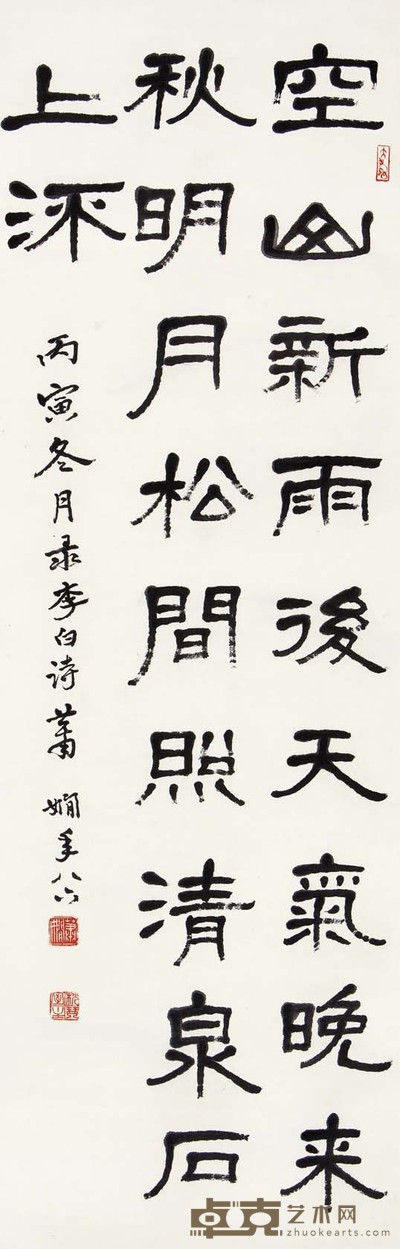 空山新雨後天氣晚来
秋明月松間照清泉石
上流
丙寅冬月录李白诗萧娴年八六
卓克艺术网
www.zhuokearts.com